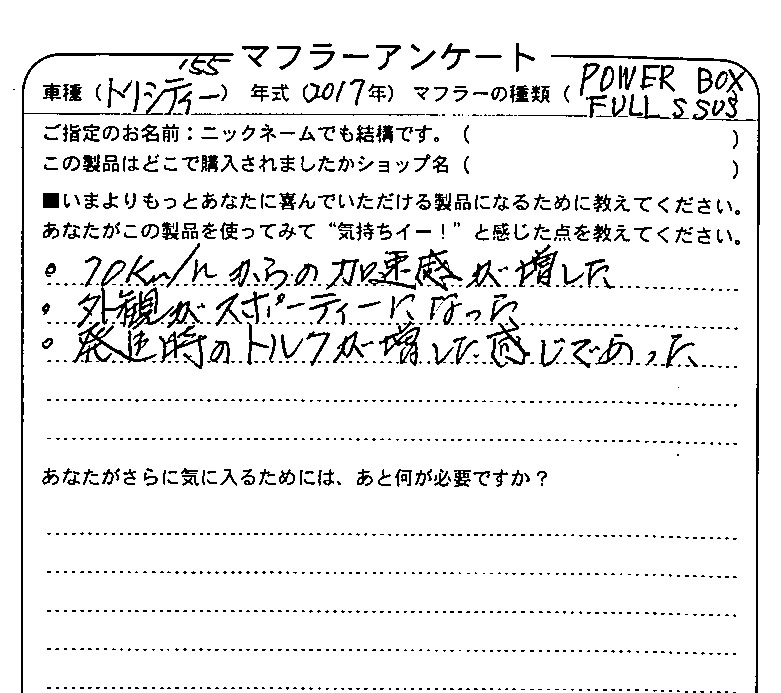 マフラーアンケート
車種（トリシティー '155）年式（2017年）マフラーの種類（POWER BOX
FULL S SUS
ご指定のお名前：ニックネームでも結構です。（　　　）
この製品はどこで購入されましたかショップ名（　　　）
■いまよりもっとあなたに喜んでいただける製品になるために教えてください。
あなたがこの製品を使ってみて“気持ちイー！”と感じた点を教えてください。
• 70Km/hからの加速感が増した
• 外観がスポーティーになった
• 発進時のトルクが増した感じであった、
あなたがさらに気に入るためには、あと何が必要ですか？